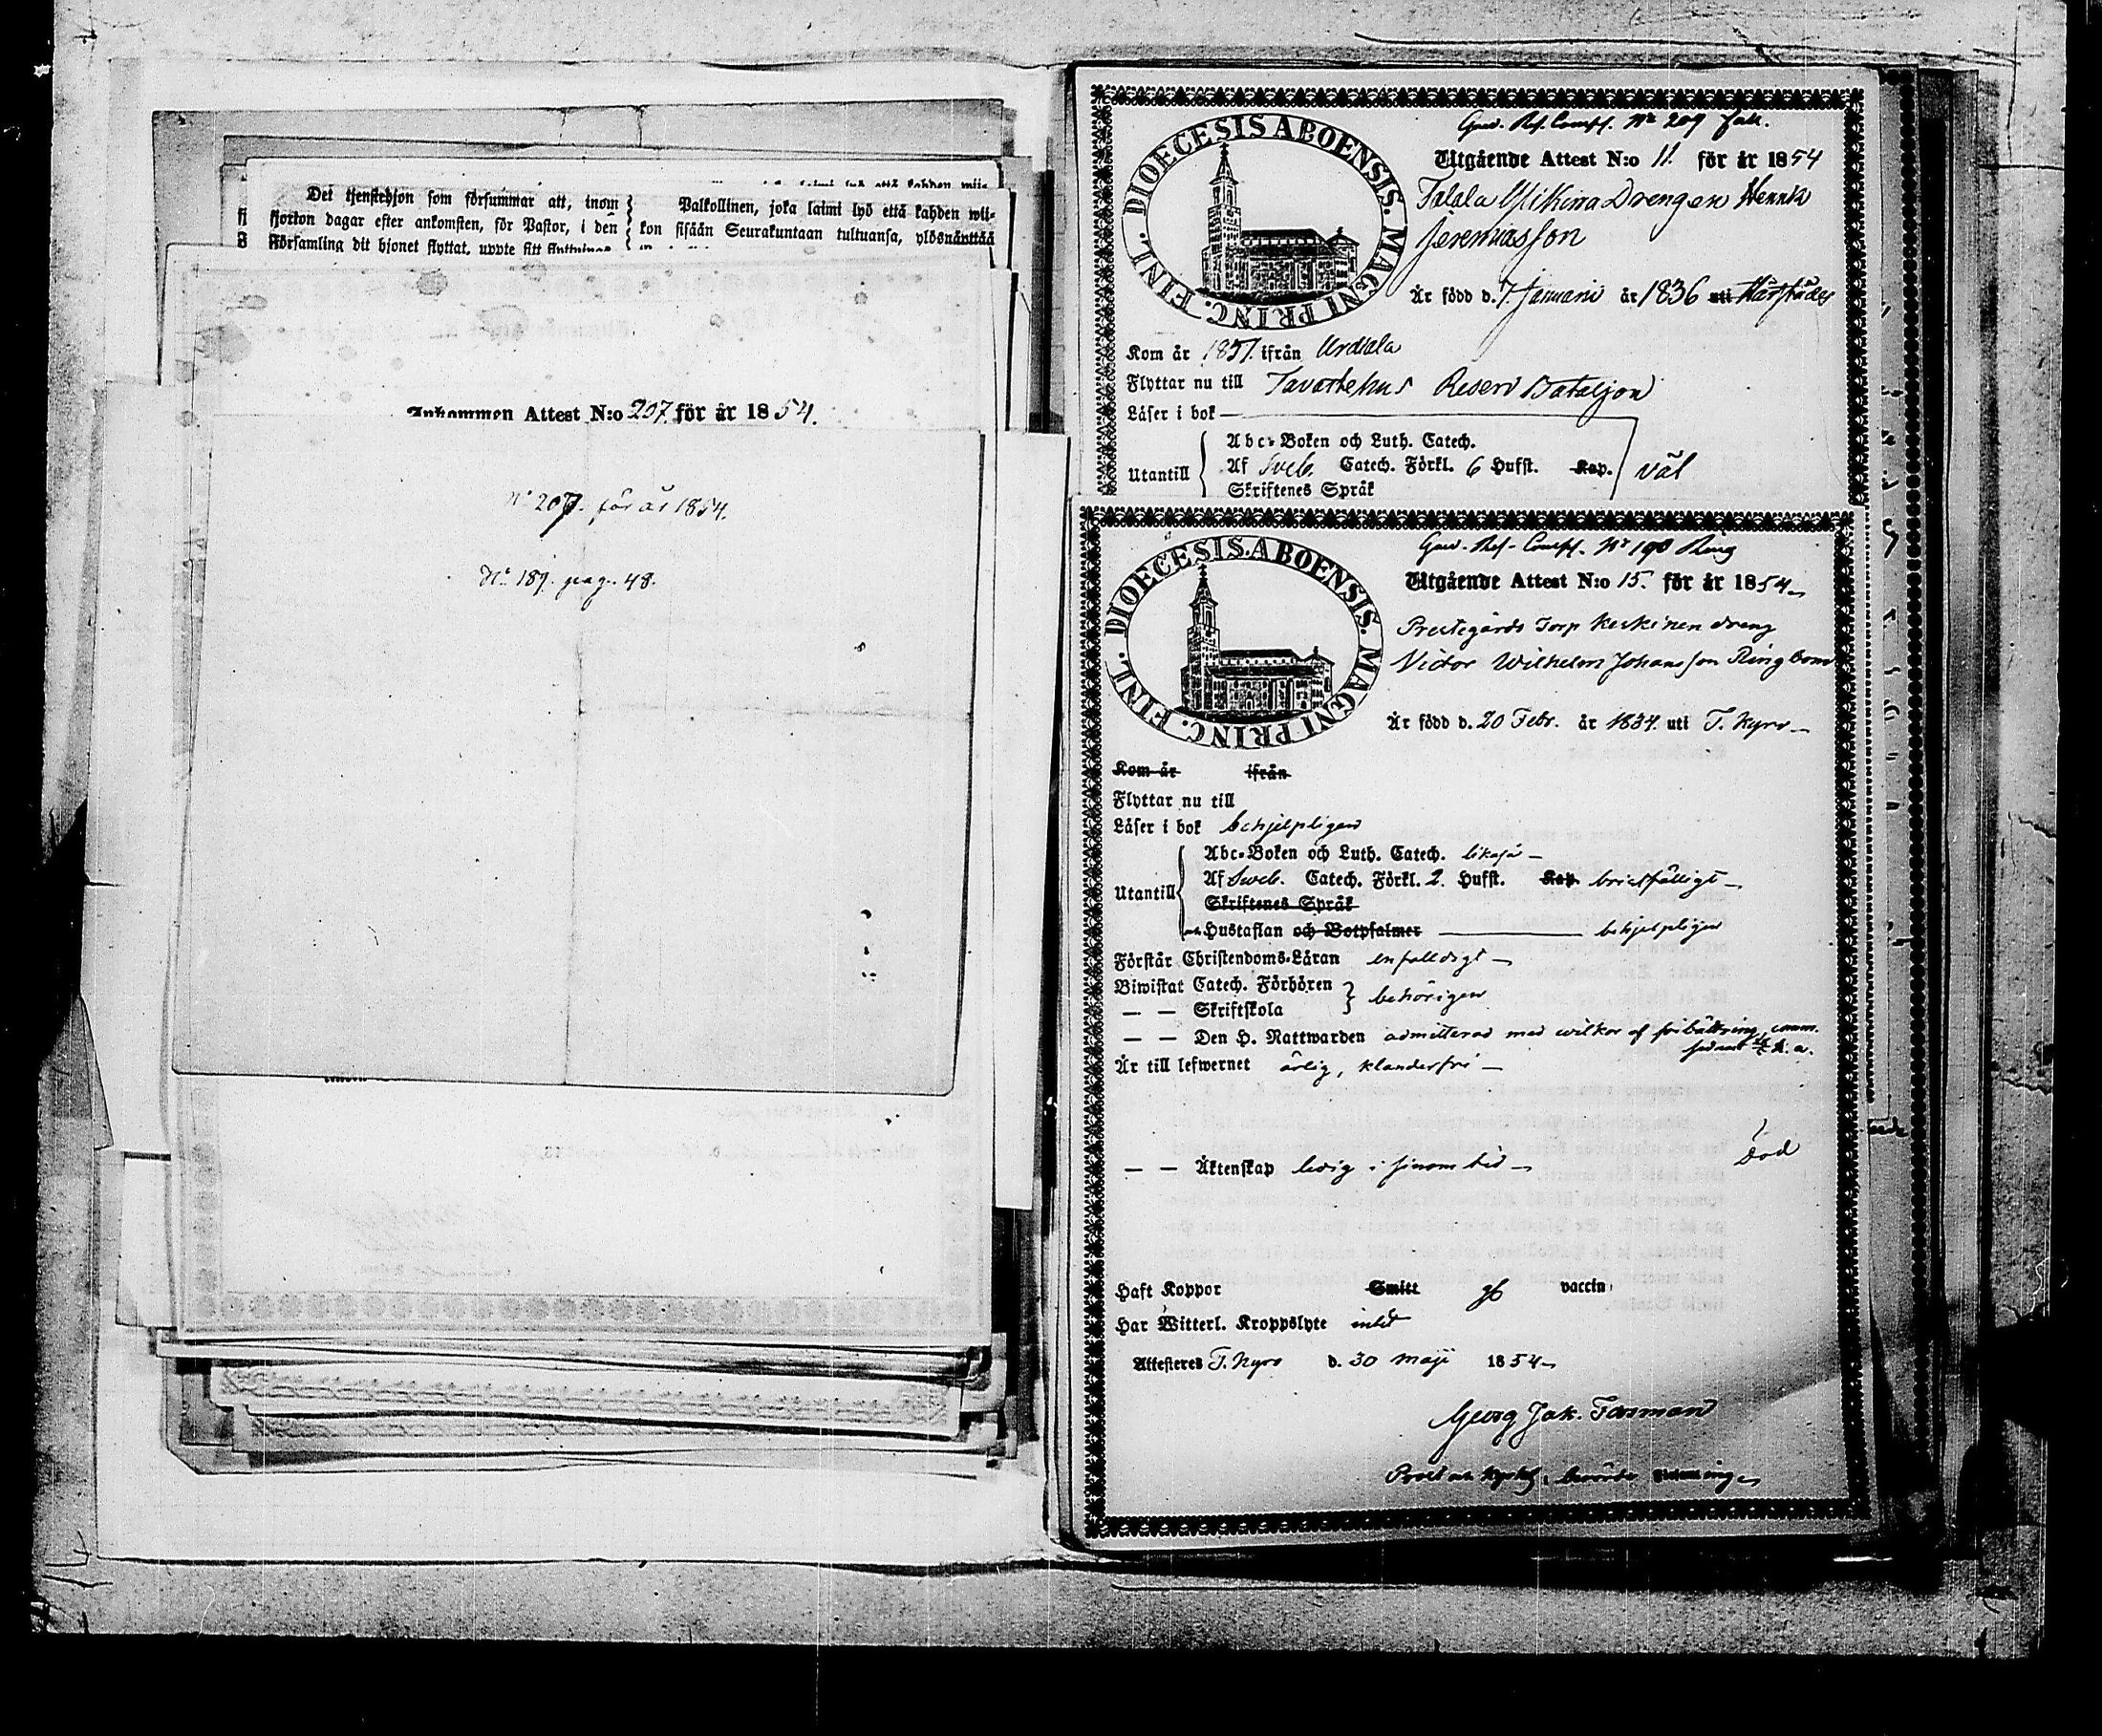 Det tjenstehjon som försummar att, inom
fjorton dagar efter ankomsten, för Pastor, i den
Församling dit hjonet flyttat, uppte sitt
Palkollinen, joka laimi lyö että kahden wii-
kon sisään Seurakuntaan tultuansa, ylösnäyttää
Inkommen Attest N:o 207. för år 1854.
N:o 207. för år 1854.
N:o 187. pag. 48.
DIOECESIS ABOENSIS. MAGNI PRINC. FINL.
No 209
Utgående Attest N:o 11. för år 1854
Drengen Henrik
Jeremiasson
Är född d. 7. Januarii år 1836 uti Härstädes
Kom år 1851. ifrån Urdiala
Flyttar nu till Tavastehus Reserv Bataljon
Läser i bok
Utantill
Abc-Boken och Luth. Catech.
Af Sveb. Catech. Förkl. 6 Hufst. Kap. väl
Skriftenes Språk
DIOECESIS ABOENSIS. MAGNI PRINC. FINL.
No 190 Ring
Utgående Attest N:o 15. för år 1854
Prestegårds Torp Keskinen dreng
Victor Wilhelm Johansson Ringbom
Är född d. 20 Febr. år 1834. uti T. Kyro
Kom år ifrån
Flyttar nu till
Läser i bok behjelpligen
Utantill
Abc-Boken och Luth. Catech. likaså
Af Sveb. Catech. Förkl. 2. Hufst. Kap. bristfälligt
Skriftenes Språk
Hustaflan och Botpsalmer behjelpligen
Förstår Christendoms-Läran enfalldigt
Biwistat Catech. Förhören behörigen
— — Skriftskola
— — Den H. Nattwarden admitterad med wilkor af förbättring, comm.
Är till lefwernet ärlig, klanderfri
Död
— — Äktenskap ledig i sinom tid
Haft Koppor Smitt vaccin
Har Witterl. Kroppslyte intet
Attesteres T. Kyro d. 30 Maji 1854
Georg Jak. Forsman